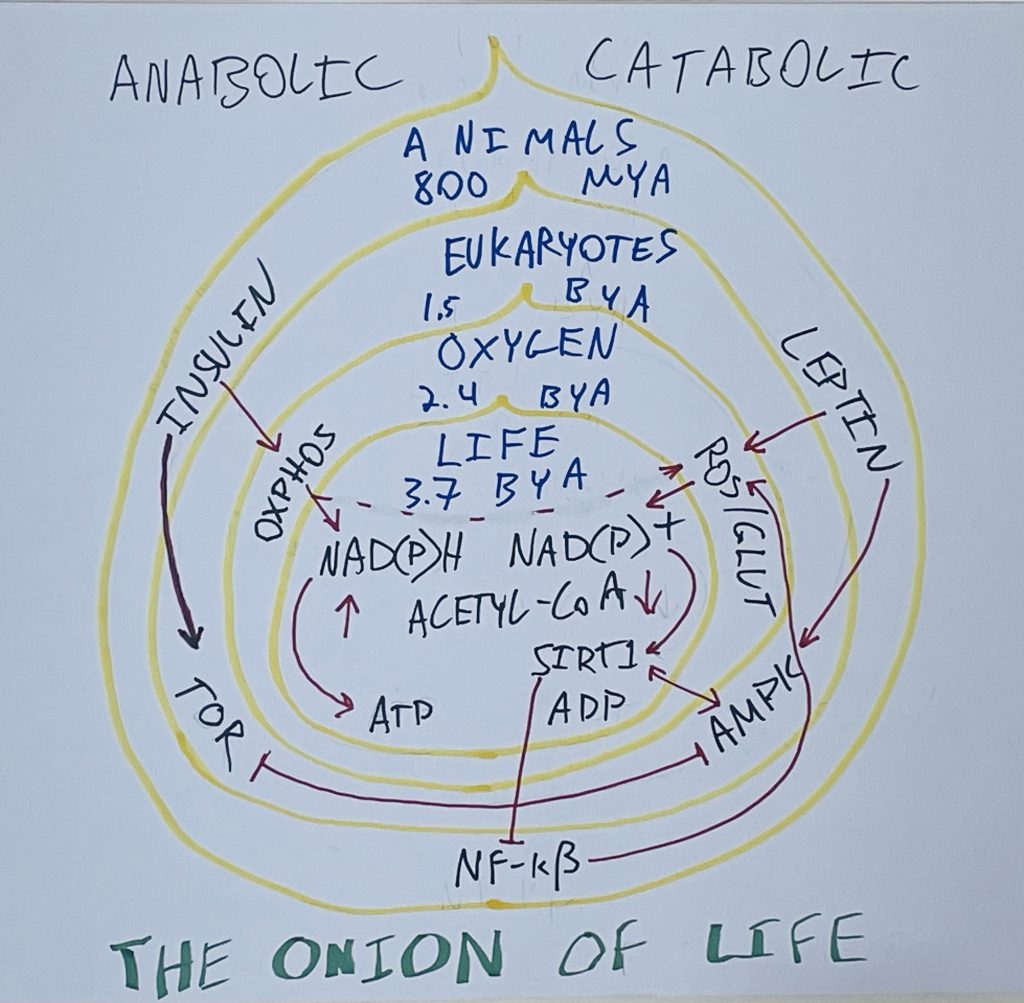 ANABOLIC
CATABOLIC
ANIMALS
800 MYA
EUKARYOTES
1.5 BYA
OXYGEN
2.4 BYA
LIFE
3.7 BYA
INSULIN
LEPTIN
OXPHOS
ROS/GLUT
NAD(P)H
NAD(P)+
ACETYL-CoA
SIRT1
ATP
ADP
TOR
AMPK
NF-kβ
THE ONION OF LIFE